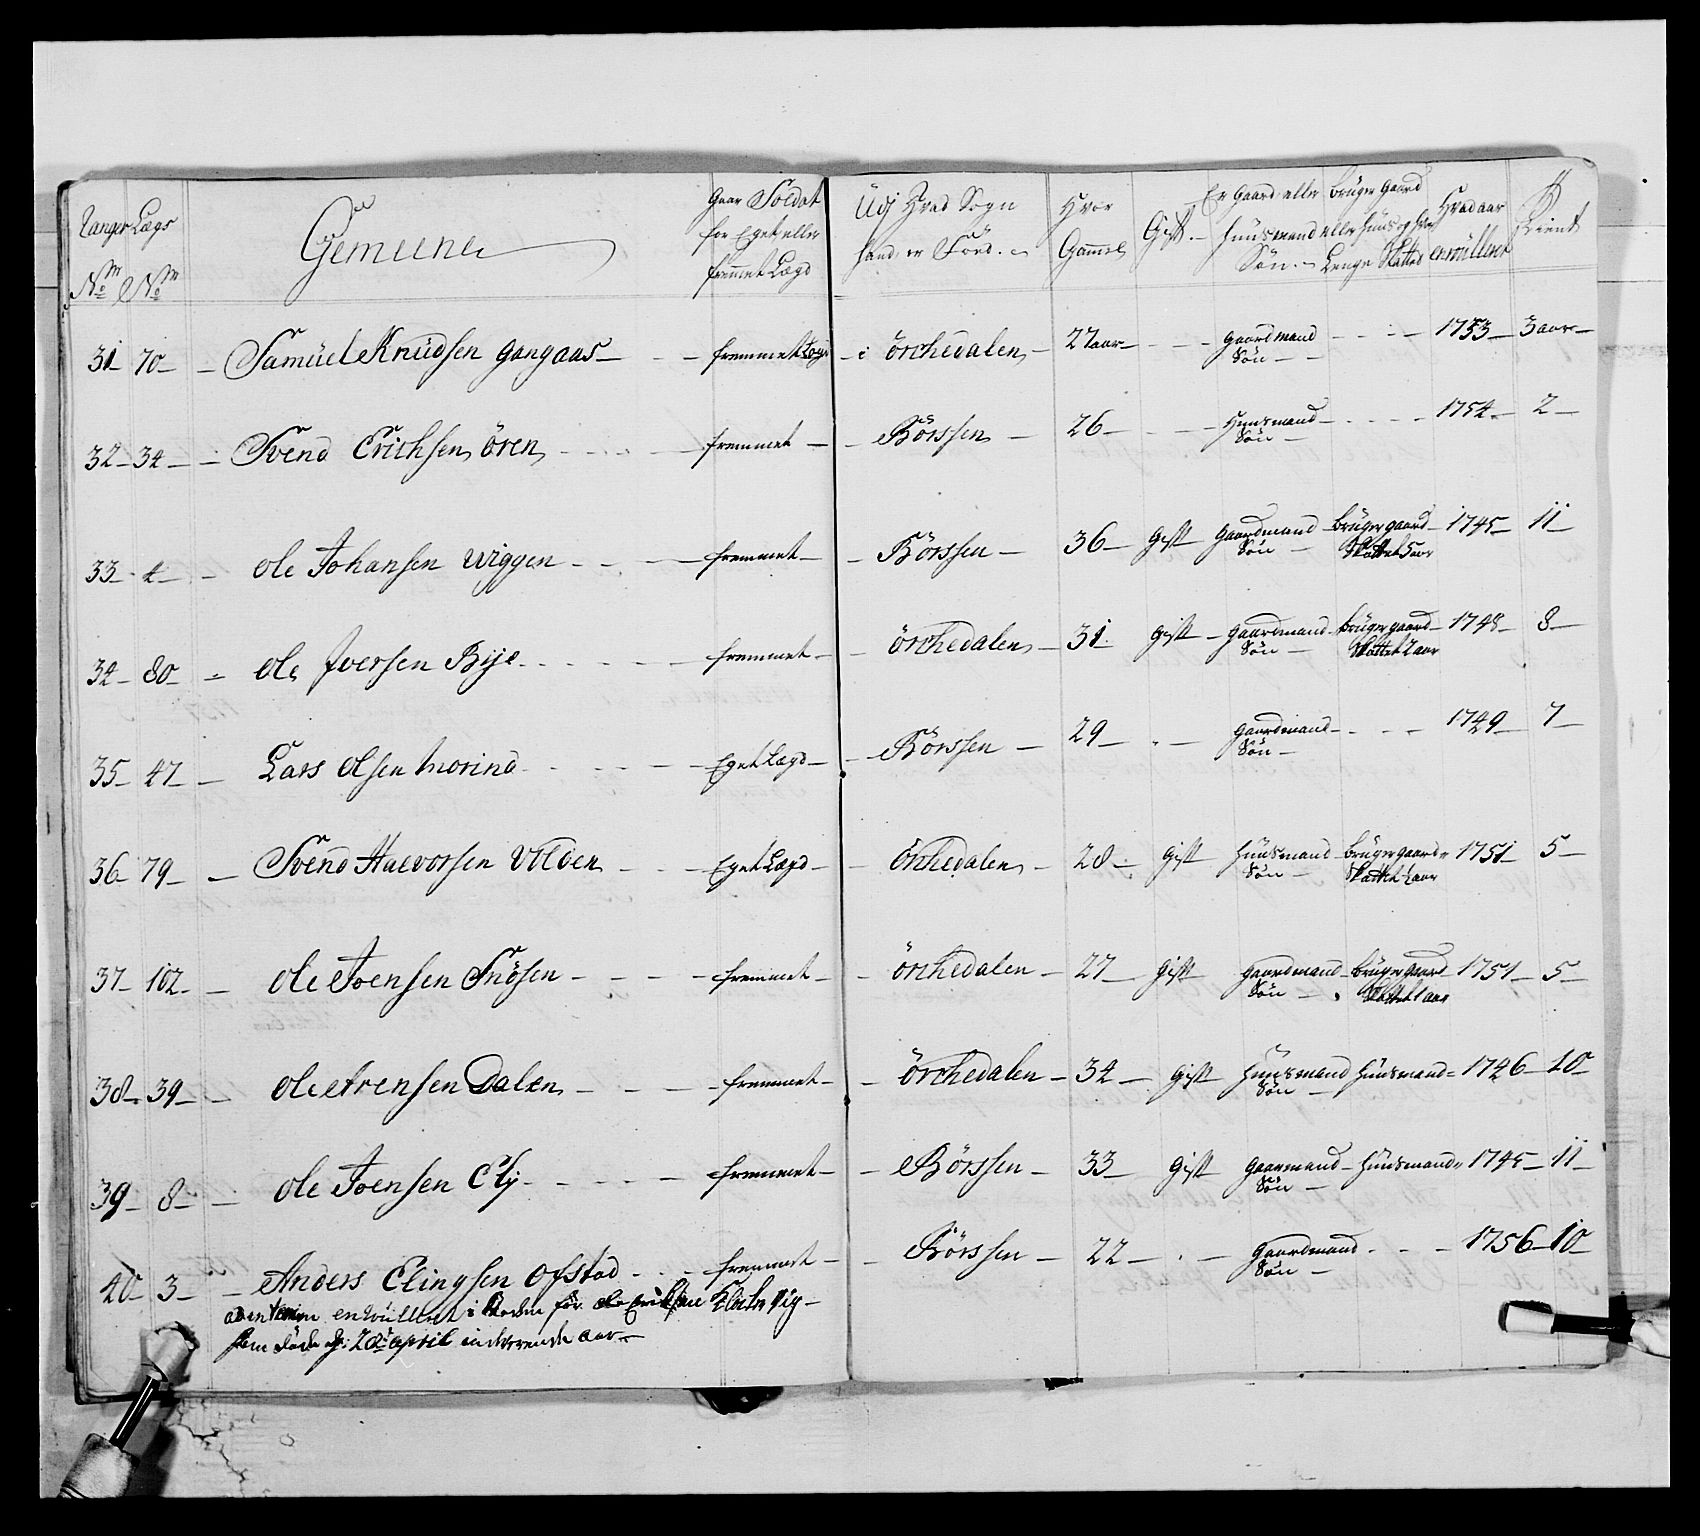 Ranger Lægs
No No
Gemeene
Gaar Soldat
for Eget eller
fremmet Lægd
Udj Hvad Sogn
hand er Föed.
Hvor
Gammel
Gift.
Er Gaard eller
Huusmand
Søn.
Bruger Gaard
eller Huus og
Lenge Skatted
Hvad aar
enrullert
Tient
31 70 Samuel Knudsen Gangaas fremmet Lægd i Örchedalen 27 aar Gaardmand Søn 1753 3 aar
32 34 Svend Erichsen Ören fremmet Börssen 26 Huusmand Søn 1754 2
33 4 Ole Johansen Wiggen fremmet Börssen 36 Gift Gaardmand Søn Bruger gaard Skattet 5 aar 1745 11
34 80 Ole Iversen Bije fremmet Örchedalen 31 Gift Gaardmand Søn Bruger gaard Skattet 2 aar 1748 8
35 47 Lars Olsen Morind Eget Lægd Börssen 29 Gaardmand Søn 1749 7
36 79 Svend Halvorsen Volden Eget Lægd Örchedalen 28 Gift Huusmand Søn Bruger gaard Skattet 2 aar 1751 5
37 102 Ole Joensen Snösen fremmet Örchedalen 27 Gift Gaardmand Søn Bruger gaard Skattet 1 aar 1751 5
38 39 Ole Arensen Dalen fremmet Örchedalen 34 Gift Huusmand Søn Huusmand 1746 10
39 8 Ole Joensen Elij fremmet Börssen 33 Gift Gaarmand Søn Huusmand 1745 11
40 3 Anders Elingsen Ofstad fremmet Börssen 22 Gaardmand Søn 1756 10
enrulleret i steden for Ole Eriksen
som döde d: 20 april indeverende aar